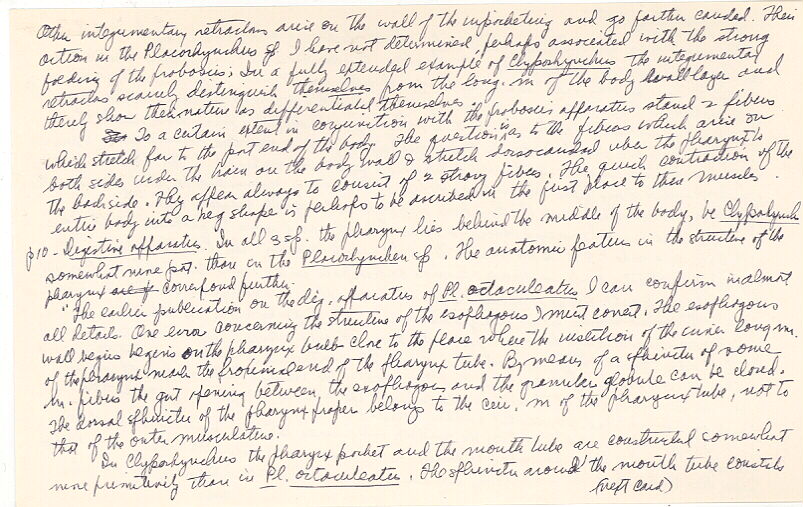 Other integumentary retractors arise on the wall of the inpocketing and go farther caudad. Their
action in the Placorhynchus sp I have not determined, perhaps associated with the strong
folding of the proboscis. In a fully extended example of Clyporhynchus the integumental
retractors scarcely distinguish themselves from the long. m of the body wall layer and
thereby show their nature as differentiated themselves.
To a certain extent in conjunction with the proboscis apparatus stand 2 fibers
which stretch far to the post end of the body. The question is as to the fibers which arise on
both sides under the brain on the body wall & stretch dorsocaudad uber the pharynx to
the backside. They appear always to consist of 2 strong fibers. The quick contraction of the
entire body into a keg shape is perhaps to be ascribed in the first place to these muscles.
p10 - Digestive apparatus. In all 3 sp. the pharynx lies behind the middle of the body, be Clyporhynch
somewhat more post. than in the Placorhynchus sp. The anatomic features in the structure of the
pharynx correspond further.
"The earlier publication on the dig. apparatus of Pl. octaculeatus I can confirm in almost
all details. One error concerning the structure of the esophagous I must correct. The esophagous
wall begins begins on the pharynx bulb close to the place where the insertion of the inner long m.
of the pharynx mark the proximal end of the pharynx tube. By means of a sphincter of some
m. fibers the gut opening between the esophagous and the granular globule can be closed.
The dorsal sphincter of the pharynx proper belongs to the circ. m of the pharynx tube, not to
that of the outer musculature.
In Clyporhynchus the pharynx pocket and the mouth tube are constructed somewhat
more primitively than in Pl. octaculeatus. The sphincter around the mouth tube consists
(next card)